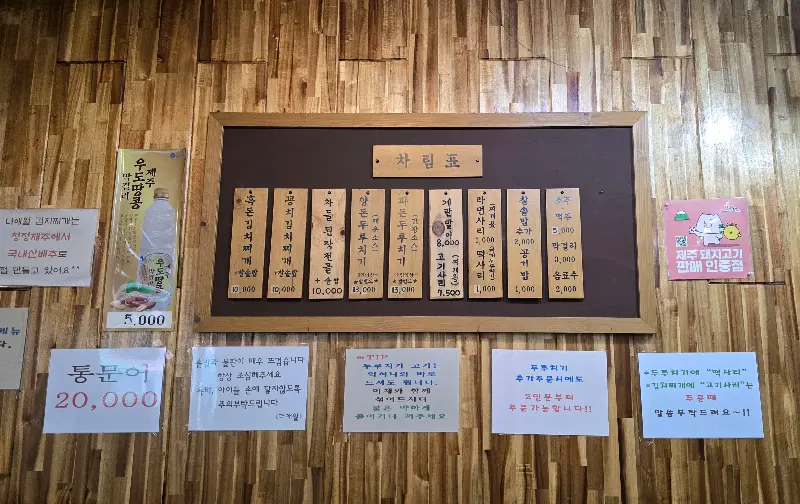 차림표
흑돈김치찌개
+찰솥밥
10,000
꽁치김치찌개
+찰솥밥
10,000
차돌된장전골
+솥밥
10,000
13,000
파돈두루치기
13,000
계란말이
8,000
고기사리
7,500
라면사리
1,000
떡사리
1,000
찰솥밥
추가
2,000
공기밥
1,000
소주
맥주
5,000
막걸리
3,000
음료수
2,000
제주
우도땅콩
막걸리
5,000
청정제주에서
국내산배추로
만들고 있어요^^
제주 돼지고기
판매 인증점
통문어
20,000
솥밥과 불판이 매우 뜨겁습니다
항상 조심해주세요
특히, 아이들 손에 닿지않도록
주의부탁드립니다
TIP
두루치기 고기!
익히는와 바로
드셔도 됩니다.
야채와 함께
볶아드시다
불은 약하게
줄이거나 꺼주세요
두루치기
추가주문시에도
2인분부터
주문가능합니다!!
*두루치기에 "떡사리"
*김치찌개에 "고기사리"는
주문때
말씀부탁드려요~!!